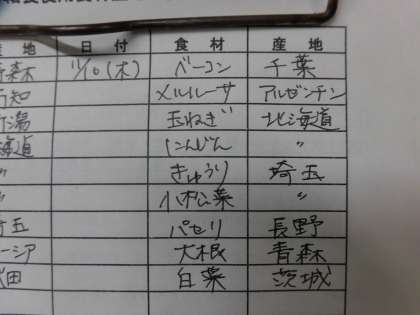 産 地 日 付 食 材 産 地
青森 11/10(木) ベーコン 千葉
高知 メルルーサ アルゼンチン
新潟 玉ねぎ 北海道
北海道 にんじん 〃
〃 きゅうり 埼玉
〃 小松菜 〃
埼玉 パセリ 長野
ーシア 大根 青森
田 白菜 茨城